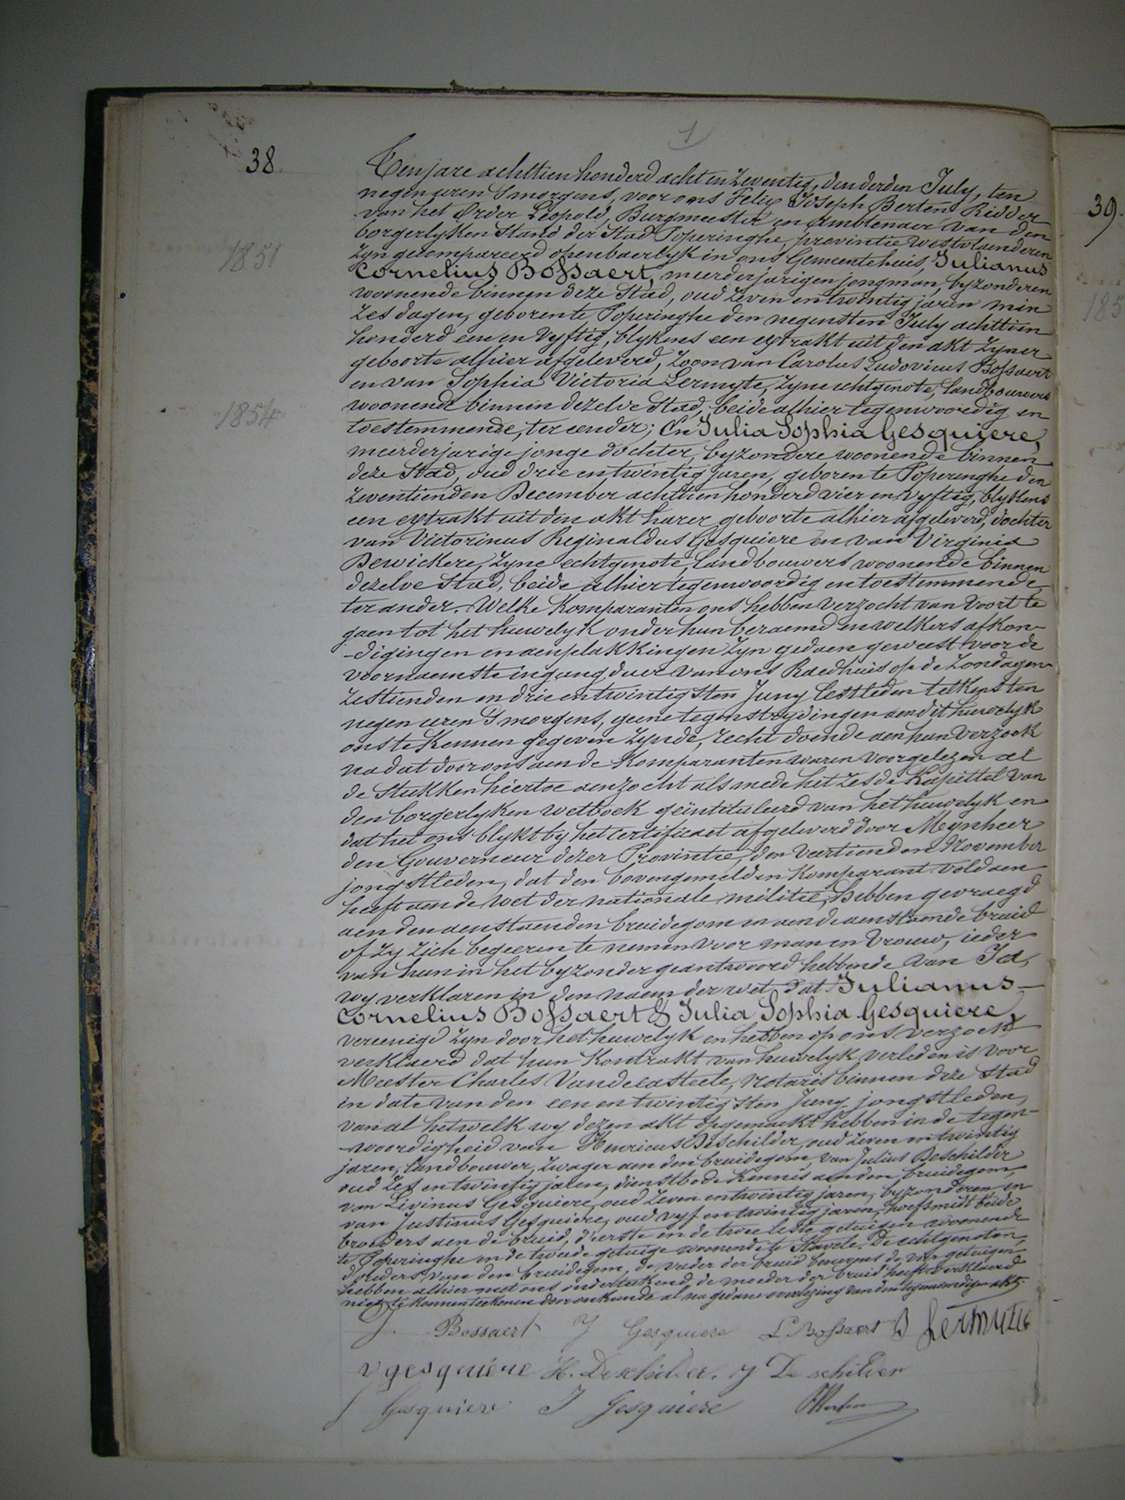 1
38.
Ten jare achttien honderd acht en zeventig, den derden July, ten
negen uren 'smorgens, voor ons Felix Joseph Berten Ridder
van het Order Léopold, Burgmeester en Ambtenaer van den
borgerlyken Stand der Stad Poperinghe, provintie Westvlaenderen
zyn gekompareerd openbaerlyk in ons Gemeentehuis, Julianus
1851
Cornelius Bossaert, meerderjarigen jongman, byzonderen
woonende binnen deze Stad, oud zeven en twintig jaren min
zes dagen, geboren te Poperinghe den negensten July achttien
honderd een en vyftig, blykens een extrakt uit den akt zyner
geboorte alhier afgeleverd, zoon van Carolus Ludovicus Bossaert
en van Sophia Victoria Lermyte, zyne echtgenote, landbouwers
woonende binnen dezelve Stad, beide alhier tegenwoordig en
1854
toestemmende, ter eender; En Julia Sophia Gesquiere,
meerderjarige jonge dochter, byzondere woonende binnen
deze Stad, oud drie en twintig jaren, geboren te Poperinghe den
zeventienden December achttien honderd vier en vyftig, blykens
een extrakt uit den akt harer geboorte alhier afgeleverd, dochter
van Victorinus Reginaldus Gesquiere en van Virginia
Dewickere, zyne echtgenote, landbouwers woonende binnen
dezelve Stad, beide alhier tegenwoordig en toestemmende,
ter ander. Welke Komparanten ons hebben verzocht van voort te
gaen tot het huwelyk onder hun beraemd en welkers afkon-
-digingen en aenplakkingen zyn gedaen geweest voor de
voornaemste ingangdeur van ons Raedhuis op de zondagen
zestienden en drie en twintigsten Juny lestleden telkens ten
negen uren 'smorgens, geene tegenstrydingen aen dit huwelyk
ons te kennen gegeven zynde, recht doende aen hun verzoek
na dat door ons aen de Komparanten waren voorgelezen al
de stukken hiertoe aenzocht als mede het zesde Kapittel van
den borgerlyken wetboek geïntituleerd van het huwelyk en
dat het ons blykt by het certificaet afgeleverd door Mynheer
den Gouverneur dezer Provintie, den veertienden November
jongstleden, dat den bovengemelden Komparant voldaen
heeft aen de wet der nationale militie, hebben gevraegd
aen den aenstaenden bruidegom en aen de aenstaende bruid
of zy zich begeeren te nemen voor man en vrouw, ieder
van hun in het byzonder geantwoord hebbende van Ja,
wy verklaren in den naem der wet, dat Julianus-
Cornelius Bossaert & Julia Sophia Gesquiere,
vereenigd zyn door het huwelyk en hebben op ons verzoek
verklaerd dat hun Kontrakt van huwelyk verleden is voor
Meester Charles Vandecasteele, Notaris binnen deze Stad
in date van den een en twintigsten Juny jongstleden,
van al hetwelk wy dezen akt opgemaakt hebben in de tegen-
-woordigheid van Henricus Deschilder, oud zeven en twintig
jaren, landbouwer, zwager aen den bruidegom, van Julius Deschilder
oud zes en twintig jaren, dienstbode kennis aen den bruidegom,
van Livinus Gesquiere, oud zeven en twintig jaren, byzonderen en
van Justinus Gesquiere, oud vyf en twintig jaren, hoefsmidt beide
broeders aen de bruid, d'eerste en de twee leste getuigen woonende
te Poperinghe en de tweede getuige woonende te Stavele. De echtgenoten,
d'ouders van den bruidegom, de vader der bruid benevens de vier getuigen
hebben alhier met ons onderteekend, de moeder der bruid heeft verklaerd
niet te konnen teekenen door onkunde al na gedane voorlezing van den tegenwoordigen akt.
J. Bossaert J Gesquiere L. Bossaert S Lermytte
V gesquiere H. Deschilder. J Deschilder
J Gesquiere J Gesquiere
39.
185